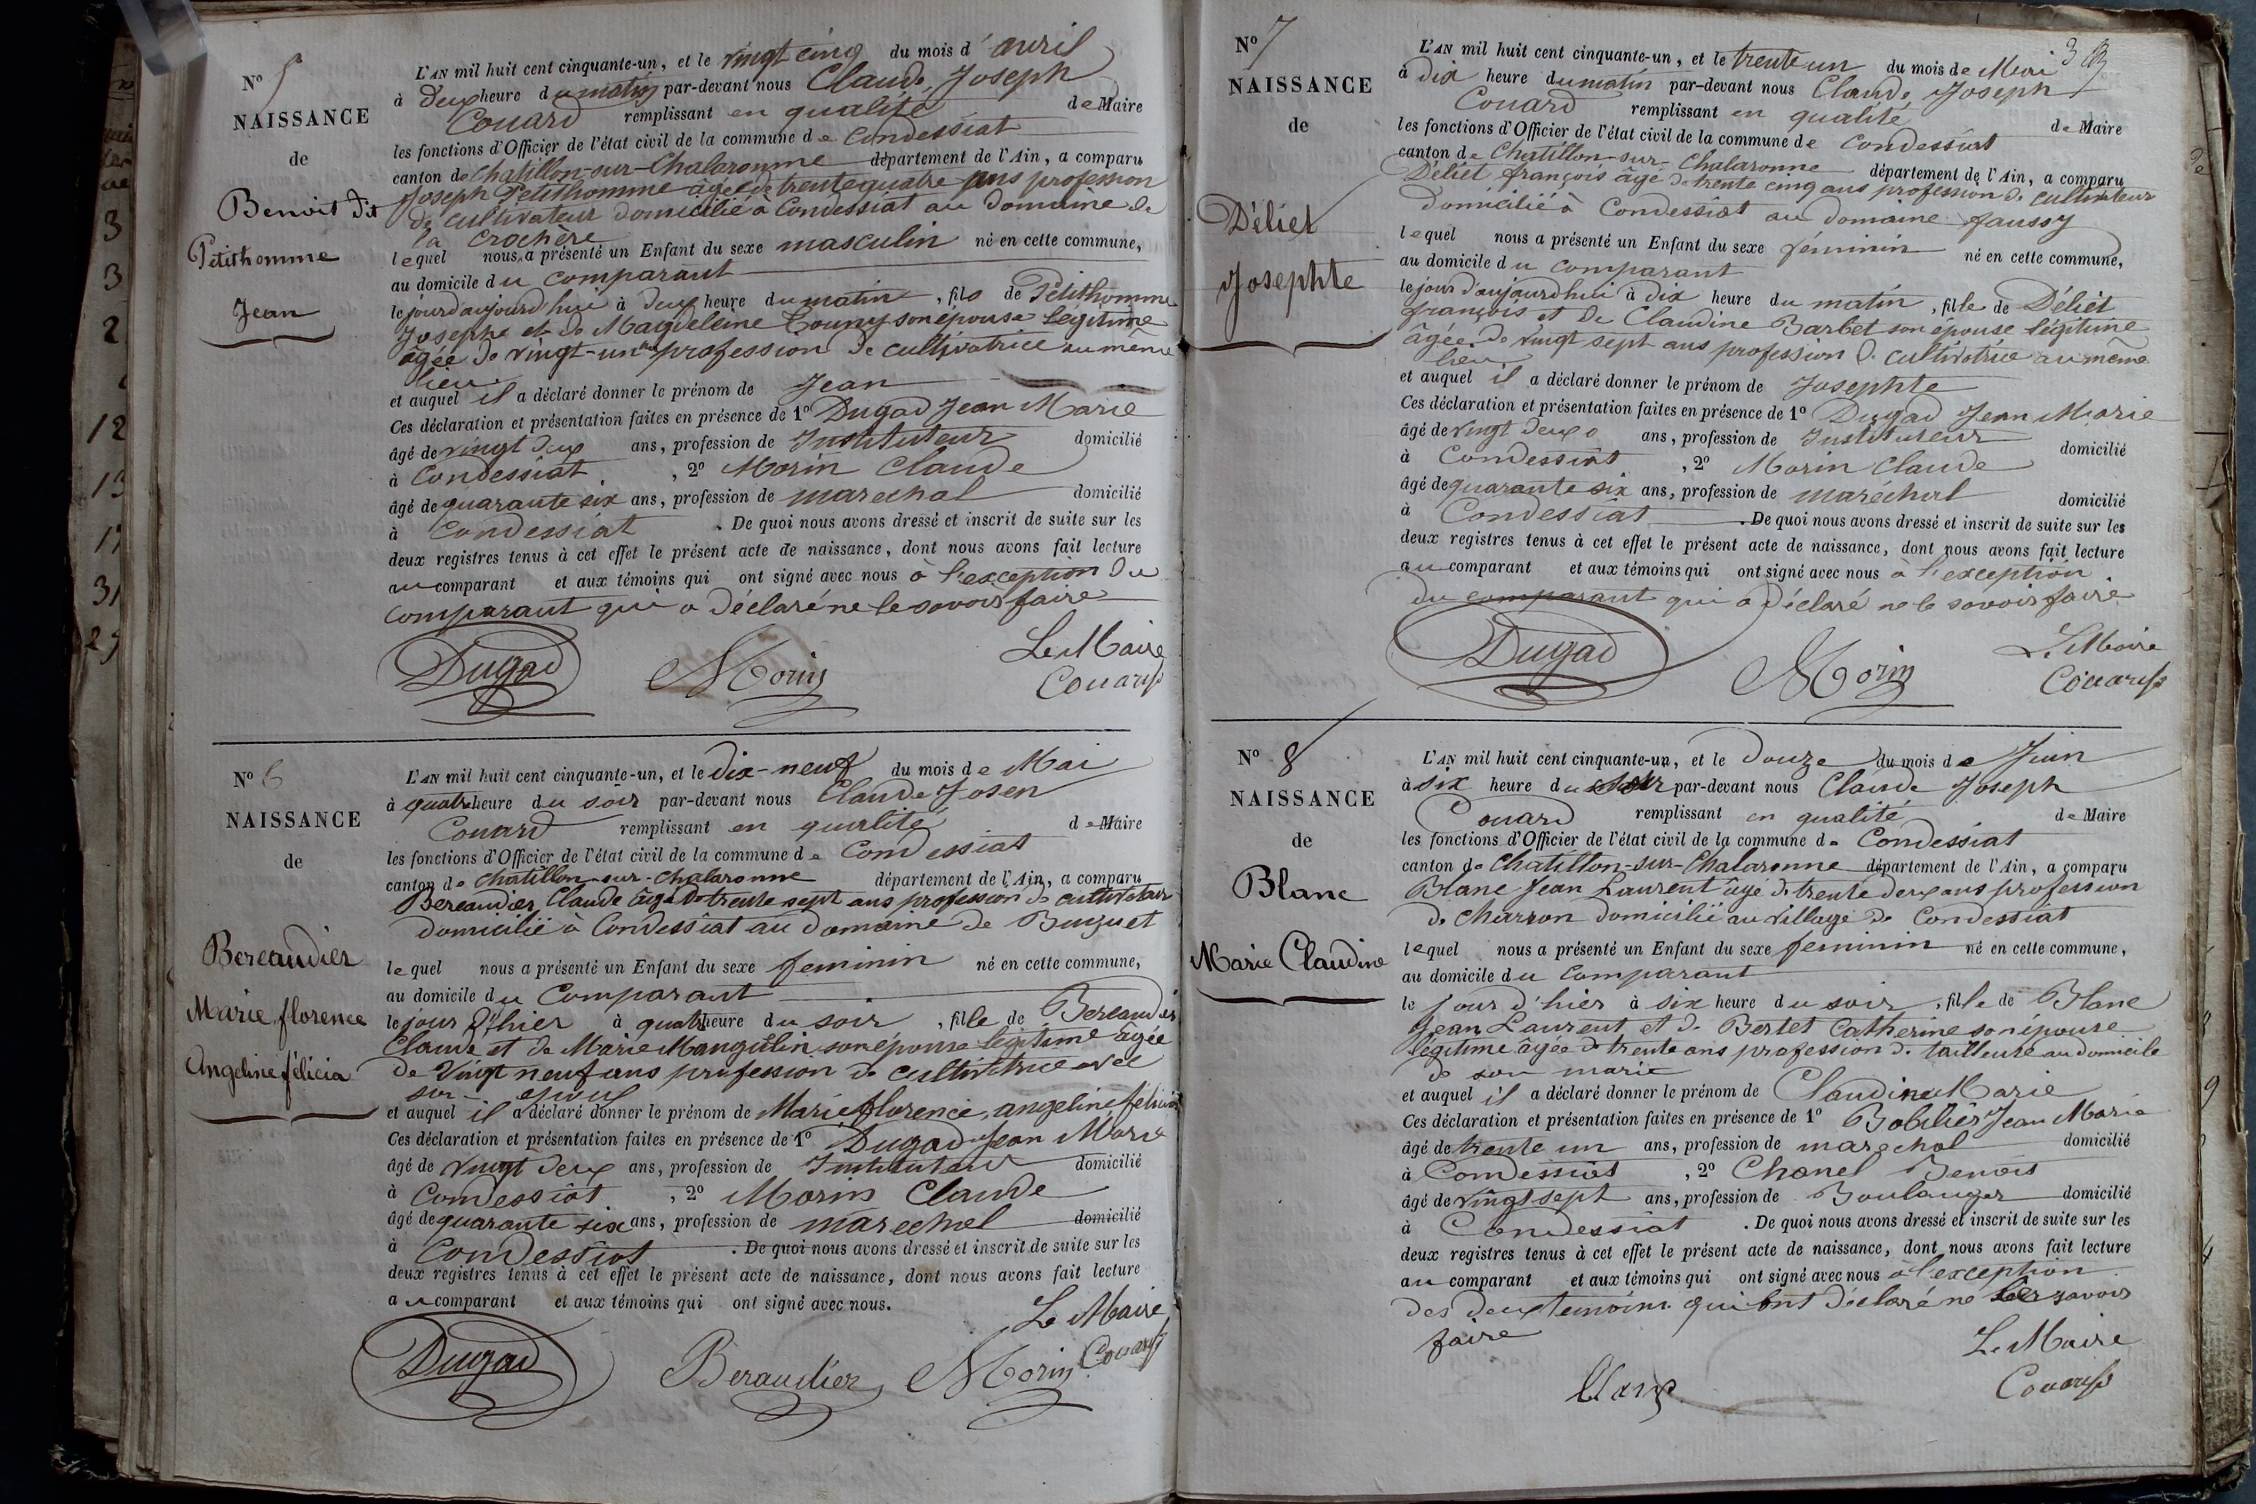 N° 5
NAISSANCE
de
Benoit dit
Petithomme
Jean
L'AN mil huit cent cinquante-un, et le vingt cinq du mois d'avril
à deux heure du matin par-devant nous Claude Joseph
Couard remplissant en qualité de Maire
les fonctions d'Officier de l'état civil de la commune de Condessiat
canton de Chatillon-sur-Chalaronne département de l'Ain, a comparu
Joseph Petithomme âgé de trente quatre ans profession
de cultivateur domicilié à Condessiat au domaine de
la Crochère
lequel nous a présenté un Enfant du sexe masculin né en cette commune,
au domicile du comparant
le jour d'aujourd'hui à deux heure du matin, fils de Petithomme
Joseph et de Magdeleine son épouse légitime
âgée de vingt-un ans profession de cultivatrice au même
lieu
et auquel il a déclaré donner le prénom de Jean
Ces déclaration et présentation faites en présence de 1° Dugad Jean Marie
âgé de vingt deux ans, profession de Instituteur domicilié
à Condessiat, 2° Morin Claude
âgé de quarante six ans, profession de marechal domicilié
à Condessiat. De quoi nous avons dressé et inscrit de suite sur les
deux registres tenus à cet effet le présent acte de naissance, dont nous avons fait lecture
au comparant et aux témoins qui ont signé avec nous à l'exception du
comparant qui a déclaré ne le savoir faire
Dugad Morin Le Maire
Couard
N° 6
NAISSANCE
de
Bereaudier
Marie florence
Angeline félicia
L'AN mil huit cent cinquante-un, et le dix-neuf du mois de Mai
à quatre heure du soir par-devant nous Claude Josep
Couard remplissant en qualité de Maire
les fonctions d'Officier de l'état civil de la commune de Condessiat
canton de Chatillon-sur-Chalaronne département de l'Ain, a comparu
Bereaudier Claude âgé de trente sept ans profession de cultivateur
domicilié à Condessiat au domaine de
lequel nous a présenté un Enfant du sexe feminin né en cette commune,
au domicile du Comparant
le jour d'hier à quatre heure du soir, fille de Bereaudier
Claude et de Marie Mangulin son épouse légitime âgée
de vingt neuf ans profession de cultivatrice avec
son epoux
et auquel il a déclaré donner le prénom de Marie florence, angeline félicia
Ces déclaration et présentation faites en présence de 1° Dugad Jean Marie
âgé de vingt deux ans, profession de Instituteur domicilié
à Condessiat, 2° Morin Claude
âgé de quarante six ans, profession de marechal domicilié
à Condessiat. De quoi nous avons dressé et inscrit de suite sur les
deux registres tenus à cet effet le présent acte de naissance, dont nous avons fait lecture
au comparant et aux témoins qui ont signé avec nous.
Le Maire
Dugad Beraudier Morin Couard
N° 7
NAISSANCE
de
Déliet
Josephte
3
L'AN mil huit cent cinquante-un, et le trente un du mois de Mai
à dix heure du matin par-devant nous Claude Joseph
Couard remplissant en qualité de Maire
les fonctions d'Officier de l'état civil de la commune de Condessiat
canton de Chatillon-sur-Chalaronne département de l'Ain, a comparu
Déliet françois âgé de trente cinq ans profession de cultivateur
domicilié à Condessiat au domaine Jaussy
lequel nous a présenté un Enfant du sexe féminin né en cette commune,
au domicile du comparant
le jour d'aujourdhui à dix heure du matin, fille de Déliet
françois et de Claudine Barbet son épouse légitime
âgée de vingt sept ans profession de cultivatrice au même
lieu
et auquel il a déclaré donner le prénom de Josephte
Ces déclaration et présentation faites en présence de 1° Dugad Jean Marie
âgé de vingt deux ans, profession de Instituteur domicilié
à Condessiat, 2° Morin Claude
âgé de quarante six ans, profession de maréchal domicilié
à Condessiat. De quoi nous avons dressé et inscrit de suite sur les
deux registres tenus à cet effet le présent acte de naissance, dont nous avons fait lecture
au comparant et aux témoins qui ont signé avec nous à l'exception
du comparant qui a déclaré ne le savoir faire
Dugad Morin Le Maire
Couard
N° 8
NAISSANCE
de
Blanc
Marie Claudine
L'AN mil huit cent cinquante-un, et le douze du mois de Juin
à six heure du soir par-devant nous Claude Joseph
Couard remplissant en qualité de Maire
les fonctions d'Officier de l'état civil de la commune de Condessiat
canton de Chatillon-sur-Chalaronne département de l'Ain, a comparu
Blanc Jean Laurent âge de trente deux ans profession
de charron domicilié au village de Condessiat
lequel nous a présenté un Enfant du sexe feminin né en cette commune,
au domicile du comparant
le jour d'hier à six heure du soir, fille de Blanc
Jean Laurent et de Bertet Catherine son épouse
légitime âgée de trente ans profession de tailleuse au domicile
de son marie
et auquel il a déclaré donner le prénom de Claudine Marie
Ces déclaration et présentation faites en présence de 1° Bobilier Jean Marie
âgé de trente un ans, profession de marechal domicilié
à Condessiat, 2° Chanel Benoit
âgé de vingt sept ans, profession de Boulanger domicilié
à Condessiat. De quoi nous avons dressé et inscrit de suite sur les
deux registres tenus à cet effet le présent acte de naissance, dont nous avons fait lecture
au comparant et aux témoins qui ont signé avec nous à l'exception
des deux temoins qui ont déclaré ne savoir
faire
Le Maire
Couard